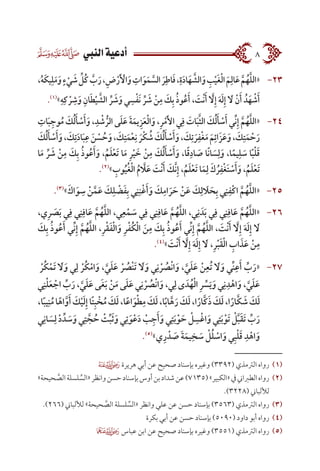 أدعية النبي ﷺ
٨
٢٣- «اللَّهُمَّ عَالِمَ الْغَيْبِ وَالشَّهَادَةِ، فَاطِرَ السَّمَوَاتِ وَالْأَرْضِ، رَبَّ كُلِّ شَيْءٍ وَمَلِيكَهُ،
أَشْهَدُ أَنْ لَا إِلَهَ إِلَّا أَنْتَ، أَعُوذُ بِكَ مِنْ شَرِّ نَفْسِي وَشَرِّ الشَّيْطَانِ وَشِرْكِهِ»(١).
٢٤- «اللَّهُمَّ إِنِّي أَسْأَلُكَ الثَّبَاتَ فِي الْأَمْرِ، وَالْعَزِيمَةَ عَلَى الرُّشْدِ، وَأَسْأَلُكَ مُوجِبَاتِ
رَحْمَتِكَ، وَعَزَائِمَ مَغْفِرَتِكَ، وَأَسْأَلُكَ شُكْرَ نِعْمَتِكَ، وَحُسْنَ عِبَادَتِكَ، وَأَسْأَلُكَ
قَلْبًا سَلِيمًا، وَلِسَانًا صَادِقًا، وَأَسْأَلُكَ مِنْ خَيْرِ مَا تَعْلَمُ، وَأَعُوذُ بِكَ مِنْ شَرِّ مَا
تَعْلَمُ، وَأَسْتَغْفِرُكَ لِمَا تَعْلَمُ، إِنَّكَ أَنْتَ عَلَّامُ الْغُيُوبِ»(٢).
٢٥- «اللَّهُمَّ اكْفِنِي بِحَلَالِكَ عَنْ حَرَامِكَ وَأَغْنِنِي بِفَضْلِكَ عَمَّنْ سِوَاكَ»(٣).
٢٦- «اللَّهُمَّ عَافِنِي فِي بَدَنِي، اللَّهُمَّ عَافِنِي فِي سَمْعِي، اللَّهُمَّ عَافِنِي فِي بَصَرِي،
لَا إِلَهَ إِلَّا أَنْتَ، اللَّهُمَّ إِنِّي أَعُوذُ بِكَ مِنَ الْكُفْرِ وَالْفَقْرِ، اللَّهُمَّ إِنِّي أَعُوذُ بِكَ
مِنْ عَذَابِ الْقَبْرِ، لَا إِلَهَ إِلَّا أَنْتَ»(٤).
٢٧- «رَبِّ أَعِنِّي وَلَا تُعِنْ عَلَيَّ، وَانْصُرْنِي وَلَا تَنْصُرْ عَلَيَّ، وَامْكُرْ لِي وَلَا تَمْكُرْ
عَلَيَّ، وَاهْدِنِي وَيَسِّرِ الْهُدَى لِي، وَانْصُرْنِي عَلَى مَنْ بَغَى عَلَيَّ، رَبِّ اجْعَلْنِي
لَكَ شَكَّارًا، لَكَ ذَكَّارًا، لَكَ رَهَّابًا، لَكَ مِطْوَاعًا، لَكَ مُخْبِتًا، إِلَيْكَ أَوَّاهًا مُنِيبًا،
رَبِّ تَقَبَّلْ تَوْبَتِي وَاغْسِلْ حَوْبَتِي وَأَجِبْ دَعْوَتِي وَثَبِّتْ حُجَّتِي وَسَدِّدْ لِسَانِي
وَاهْدِ قَلْبِي وَاسْلُلْ سَخِيمَةَ صَدْرِي»(٥).
(١) رواه الترمذي (٣٣٩٢) وغيره بإسناد صحيح عن أبي هريرة ﵁
(٢) رواه الطبراني في «الكبير» (٧١٣٥) عن شداد بن أوس بإسناد حسن وانظر «السلسلة الصحيحة»
للألباني (٣٢٢٨).
(٣) رواه الترمذي (٣٥٦٣) بإسناد حسن عن علي وانظر «السلسلة الصحيحة» للألباني (٢٦٦).
(٤) رواه أبو داود (٥٠٩٠) بإسناد حسن عن أبي بكرة
(٥) رواه الترمذي (٣٥٥١) وغيره بإسناد صحيح عن ابن عباس ﵄